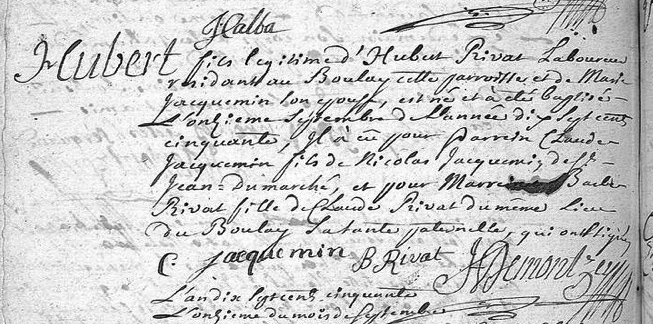 J Calba
Hubert fils legitime d'Hubert Rivat Laboureur
residant au Boulay cette parroisse et de Marie
Jacquemin son epouse, est né et à été baptisé
L'onzieme Septembre de L'année dix Sept cent
cinquante, Il à eu pour Parrein Claude
Jacquemin fils de Nicolas Jacquemin de St
Jean-Dumarché, et pour Marreine Barbe
Rivat fille de Claude Rivat du même Lieu
du Boulay La tante paternelle, qui ont signé
C. jacquemin B Rivat
L'an dix Sept cent cinquante
L'onzieme du mois de Septembre